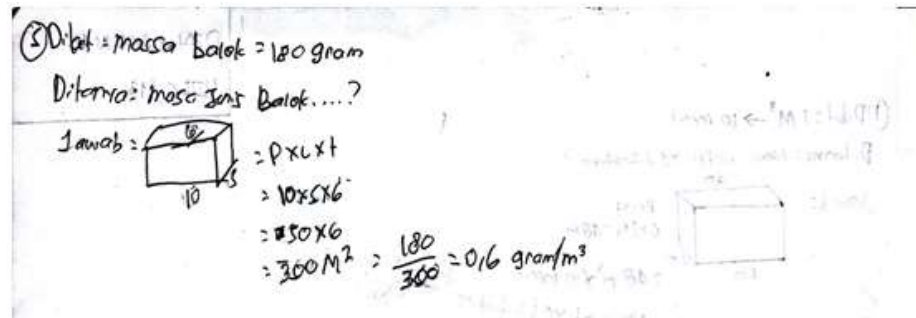 ⑤ Diket : massa balok = 180 gram
Ditanya : masa Jenis Balok....?
Jawab :
= P x L x t
10 5
= 10x5x6
= 50x6
= 300 M² = 180/300 = 0,6 gram/m³